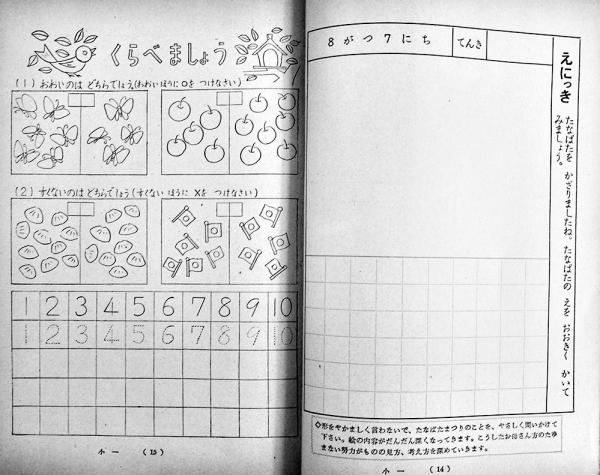 くらべましょう
(1) おおいのは どちらでしょう(おおいほうに Oを つけなさい)
(2) すくないのは どちらでしょう(すくない ほうに Xを つけなさい)
1 2 3 4 5 6 7 8 9 10
1 2 3 4 5 6 7 8 9 10
小一 (15)
8 がつ 7 にち てんき
えにっき
たなばたを かざりましたね。たなばたの えを おおきく かいて
みましょう。
◇形をやかましく言わないで、たなばたまつりのことを、やさしく問いかけて
下さい。絵の内容がだんだん深くなってきます。こうしたお母さん方のたゆ
まない努力がものの見方、考え方を深めていきます。
小一 (14)